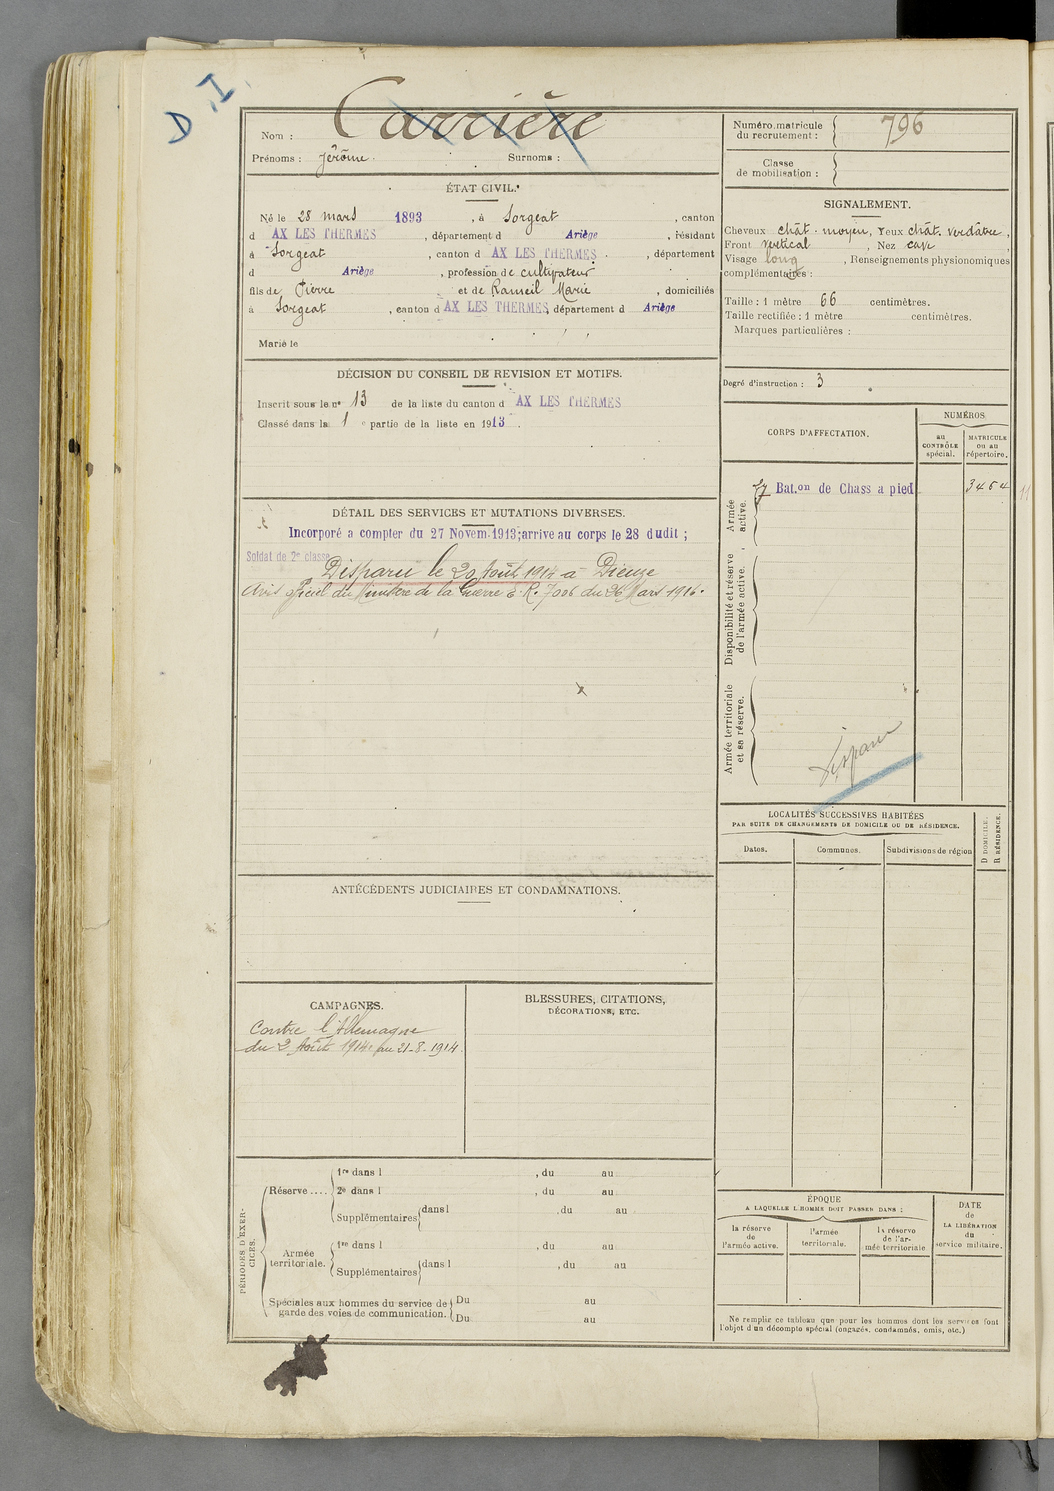 D.I.
Nom : Carrière
Prénoms : Jérôme. Surnoms :
ÉTAT CIVIL.
Né le 28 mars 1893, à Sorgeat, canton
d AX LES THERMES, département d Ariège, résidant
à Sorgeat, canton d AX LES THERMES, département
d Ariège, profession de cultivateur
fils de Pierre et de Rameil Marie, domiciliés
à Sorgeat, canton d AX LES THERMES, département d Ariège
Marié le
DÉCISION DU CONSEIL DE REVISION ET MOTIFS.
Inscrit sous le nº 13 de la liste du canton d AX LES THERMES
Classé dans la 1 e partie de la liste en 1913.
DÉTAIL DES SERVICES ET MUTATIONS DIVERSES.
Incorporé a compter du 27 Novem. 1913; arrive au corps le 28 dudit ;
Soldat de 2e classe
Disparu le 20 Août 1914 à Dieuze
Avis officiel du Ministère de la Guerre E.R. 7006 du 26 Mars 1916.
ANTÉCÉDENTS JUDICIAIRES ET CONDAMNATIONS.
CAMPAGNES.
Contre l'Allemagne
du 2 Août 1914 au 21-8-1914.
BLESSURES, CITATIONS,
DÉCORATIONS, ETC.
PÉRIODES D'EXERCICES.
Réserve ....
1re dans l , du au
2e dans l , du au
Supplémentaires dans l , du au
Armée territoriale.
1re dans l , du au
Supplémentaires dans l , du au
Spéciales aux hommes du service de garde des voies de communication.
Du au
Du au
Numéro matricule du recrutement : 796
Classe de mobilisation :
SIGNALEMENT.
Cheveux chât. moyen, Yeux chât. verdâtre,
Front vertical, Nez cave
Visage long, Renseignements physionomiques
complémentaires :
Taille : 1 mètre 66 centimètres.
Taille rectifiée : 1 mètre centimètres.
Marques particulières :
Degré d'instruction : 3
CORPS D'AFFECTATION.
NUMÉROS
au CONTRÔLE spécial.
MATRICULE ou au répertoire.
Armée active.
Bat.on de Chass a pied 3464
Disponibilité et réserve de l'armée active.
Armée territoriale et sa réserve.
Disparu
LOCALITÉS SUCCESSIVES HABITÉES
PAR SUITE DE CHANGEMENTS DE DOMICILE OU DE RÉSIDENCE.
Dates.
Communes.
Subdivisions de région
D DOMICILE.
R RÉSIDENCE.
ÉPOQUE
A LAQUELLE L'HOMME DOIT PASSER DANS :
la réserve de l'armée active.
l'armée territoriale.
la réserve de l'armée territoriale
DATE de LA LIBÉRATION du service militaire.
Ne remplir ce tableau que pour les hommes dont les services font
l'objet d'un décompte spécial (engagés, condamnés, omis, etc.)